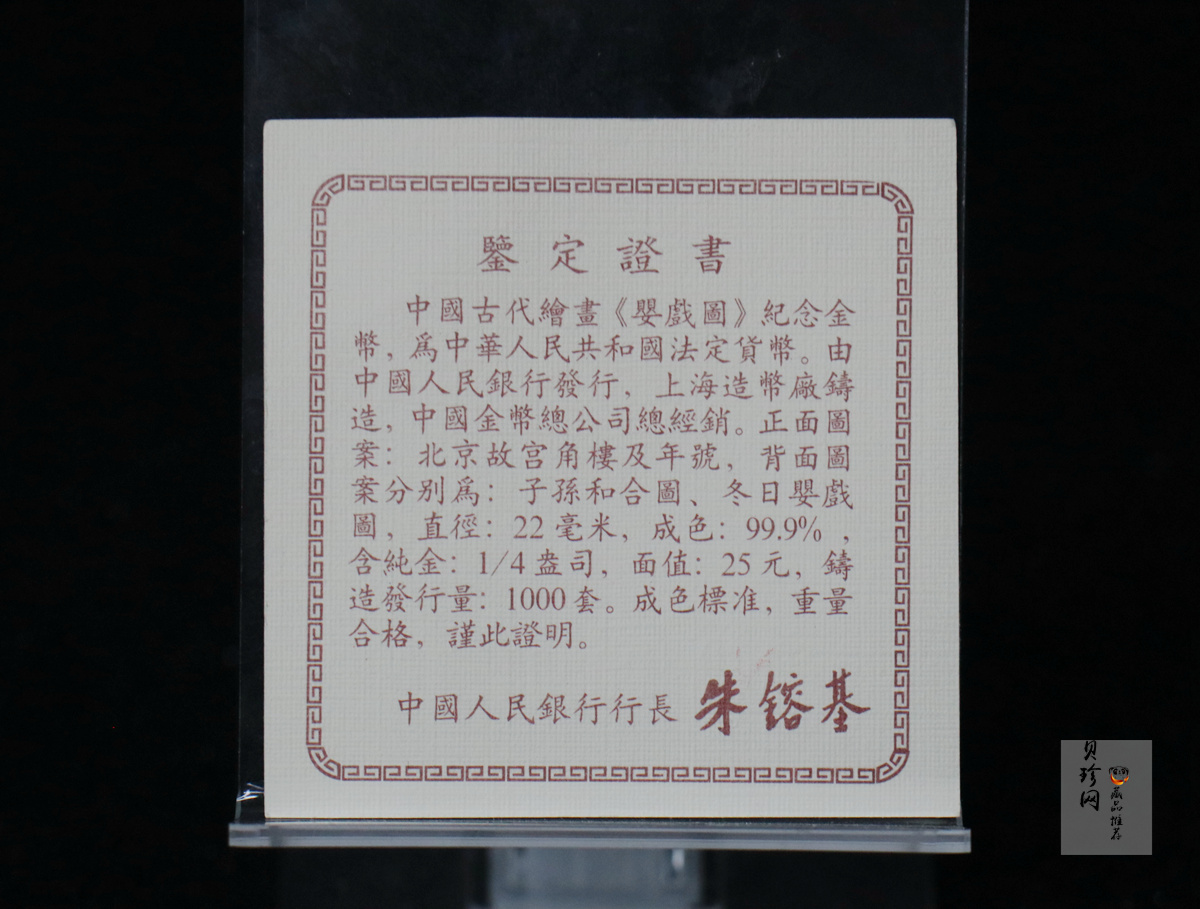 鑒定證書
中國古代繪畫《嬰戲圖》紀念金
幣，爲中華人民共和國法定貨幣。由
中國人民銀行發行，上海造幣廠鑄
造，中國金幣總公司總經銷。正面圖
案：北京故宫角樓及年號，背面圖
案分别爲：子孫和合圖、冬日嬰戲
圖，直徑：22毫米，成色：99.9%，
含純金：1/4盎司，面值：25元，鑄
造發行量：1000套。成色標准，重量
合格，謹此證明。
中國人民銀行行長 朱镕基
贝珍网
藏品推荐